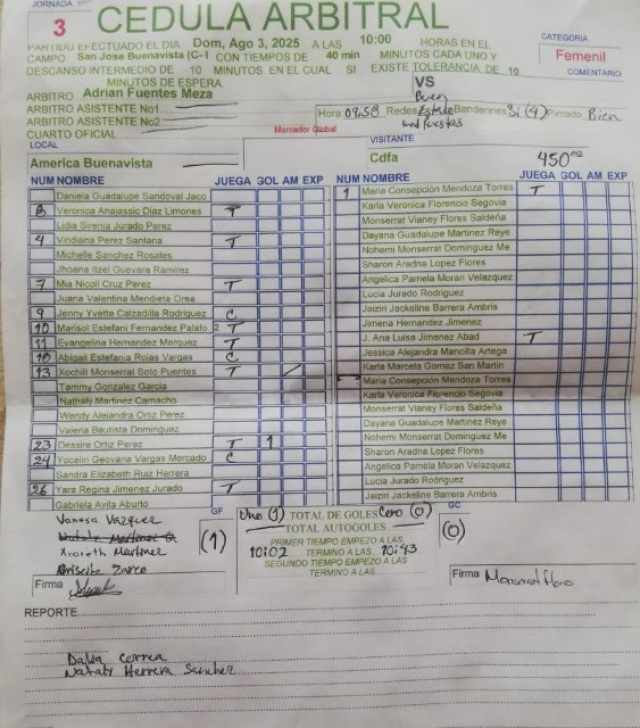 JORNADA
3
CEDULA ARBITRAL
PARTIDO EFECTUADO EL DIA Dom, Ago 3, 2025 A LAS 10:00 HORAS EN EL
CAMPO San Jose Buenavista (C-I CON TIEMPOS DE 40 min MINUTOS CADA UNO Y
DESCANSO INTERMEDIO DE 10 MINUTOS EN EL CUAL SI EXISTE TOLERANCIA DE 10
MINUTOS DE ESPERA
CATEGORIA
Femenil
COMENTARIO
ARBITRO Adrian Fuentes Meza
VS
ARBITRO ASISTENTE No1
ARBITRO ASISTENTE No2
Hora 09:58 Redes Banderines Si (4) Pintado Bien
CUARTO OFICIAL
Marcador Global
LOCAL
VISITANTE
America Buenavista
Cdfa 450
NUM NOMBRE JUEGA GOL AM EXP
Daniela Guadalupe Sandoval Jaco
Veronica Anajassic Diaz Limones T
Lidia Sirenia Jurado Perez
4 Viridiana Perez Santana T
Michelle Sanchez Rosales
Jhoana Itzel Guevara Ramirez
7 Mia Nicoll Cruz Perez T
Juana Valentina Mendieta Orea
9 Jenny Yvette Calzadilla Rodriguez C
10 Marisol Estefani Fernandez Palafo 2 T
11 Evangelina Hernandez Marquez T
Abigail Estefania Rojas Vargas C
13 Xochilt Monserrat Soto Puentes T
Tammy Gonzalez Garcia
Nathaly Martinez Camacho
Wendy Alejandra Ortiz Perez
Valeria Bautista Dominguez
23 Dessire Ortiz Perez T 1
24 Yocelin Geovana Vargas Mercado C
Sandra Elizabeth Ruiz Herrera
26 Yara Regina Jimenez Jurado T
Gabriela Avila Aburto
NUM NOMBRE JUEGA GOL AM EXP
1 Maria Consepción Mendoza Torres T
Karla Veronica Florencio Segovia
Monserrat Vianey Flores Saldeña
Dayana Guadalupe Martinez Reye
Nohemi Monserrat Dominguez Me
Sharon Aradna Lopez Flores
Angelica Pamela Moran Velazquez
Lucia Jurado Rodriguez
Jaiziri Jackeline Barrera Ambris
Jimena Hernandez Jimenez
J. Ana Luisa Jimenez Abad T
Jessica Alejandra Mancilla Artega
Karla Marcela Gomez San Martin
Maria Consepción Mendoza Torres
Karla Veronica Florencio Segovia
Monserrat Vianey Flores Saldeña
Dayana Guadalupe Martinez Reye
Nohemi Monserrat Dominguez Me
Sharon Aradna Lopez Flores
Angelica Pamela Moran Velazquez
Lucia Jurado Rodriguez
Jaiziri Jackeline Barrera Ambris
Vanesa Vazquez
Martinez
Briseida Zarco
GF
(1)
Uno (1) TOTAL DE GOLES Cero (0)
TOTAL AUTOGOLES
PRIMER TIEMPO EMPEZO A LAS
10:02 TERMINO A LAS 10:43
SEGUNDO TIEMPO EMPEZO A LAS
TERMINO A LAS
GC
(0)
Firma
Firma Monserrat Flores
REPORTE
Dalia Correa
Nataly Herrera Sanchez